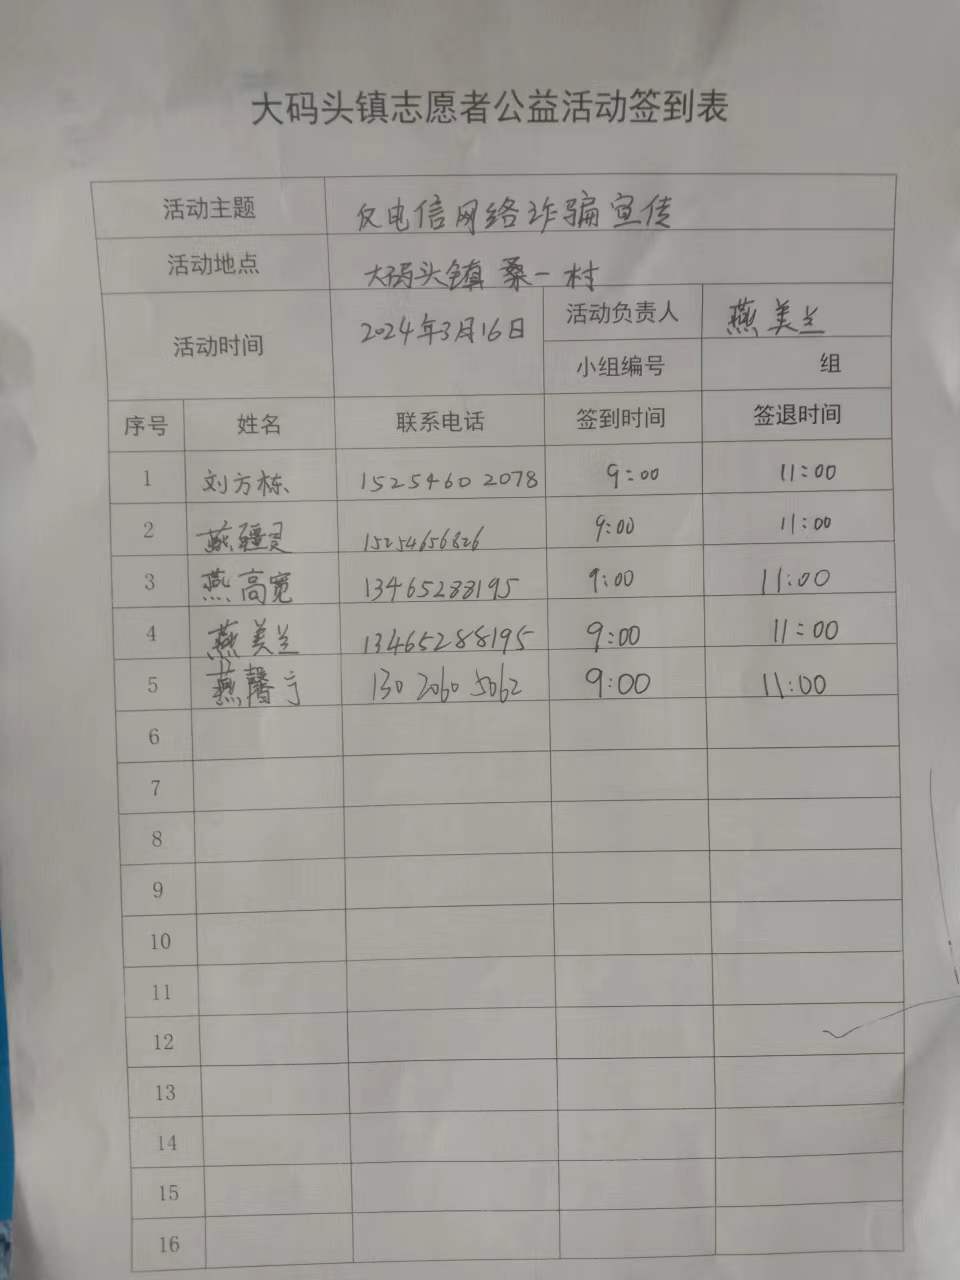 大码头镇志愿者公益活动签到表
活动主题 反电信网络诈骗宣传
活动地点 大码头镇桑一村
活动时间 2024年3月16日 活动负责人 燕美兰
小组编号 组
序号 姓名 联系电话 签到时间 签退时间
1 刘方栋 15254602078 9:00 11:00
2 燕疆灵 15254656826 9:00 11:00
3 燕高宽 13465288195 9:00 11:00
4 燕美兰 13465288195 9:00 11:00
5 燕馨宁 130 2060 5062 9:00 11:00
6
7
8
9
10
11
12
13
14
15
16